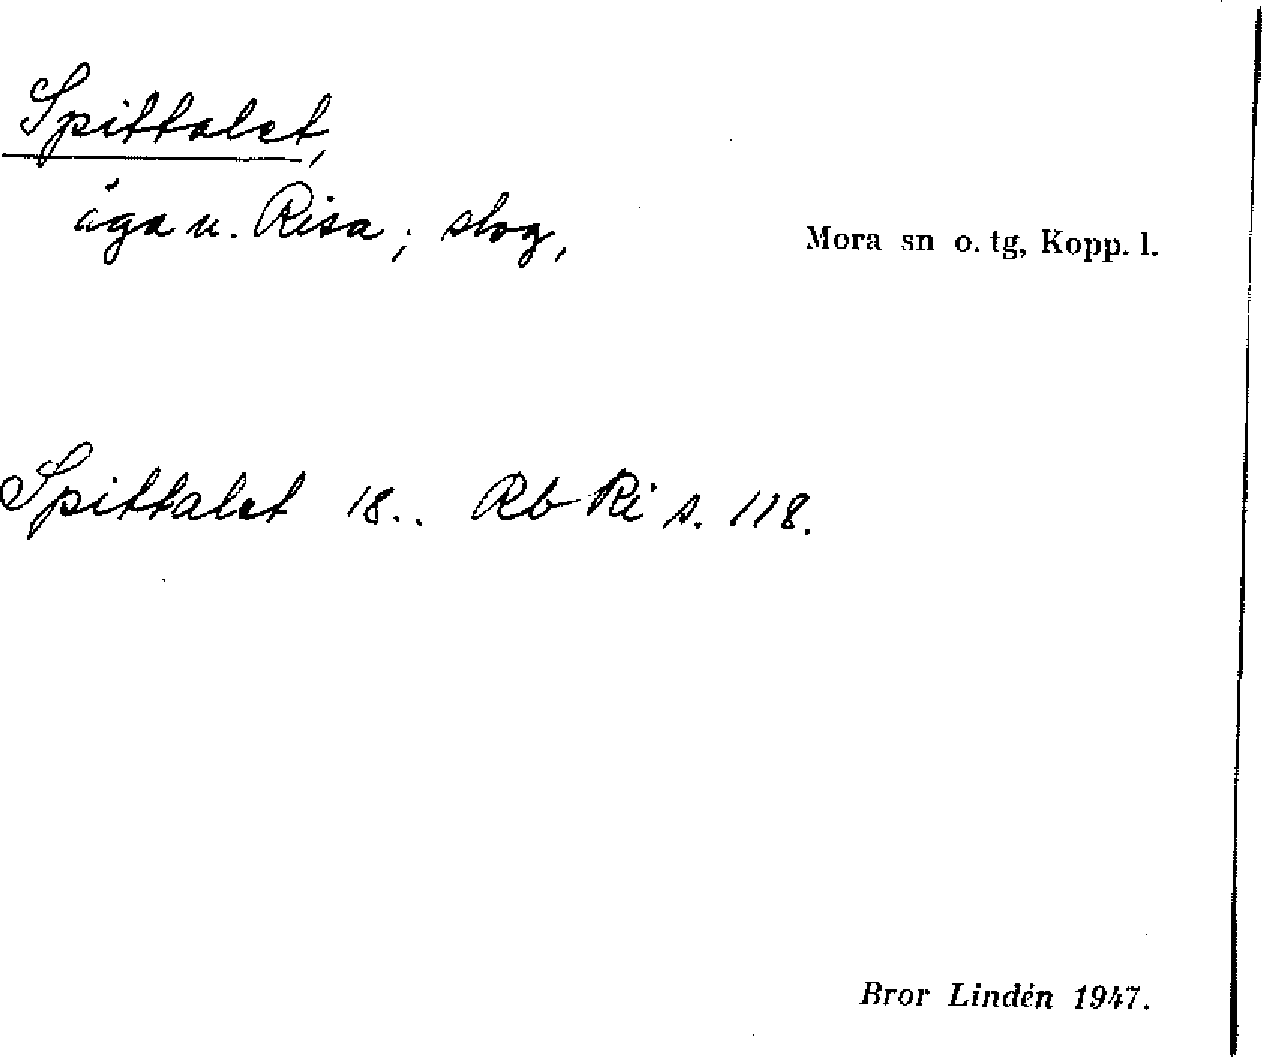 Spittalet,
äga u. Risa; slog,
Mora sn o. tg, Kopp. l.
Spittalet 18.. Rb Ri s. 118.
Bror Lindén 1947.